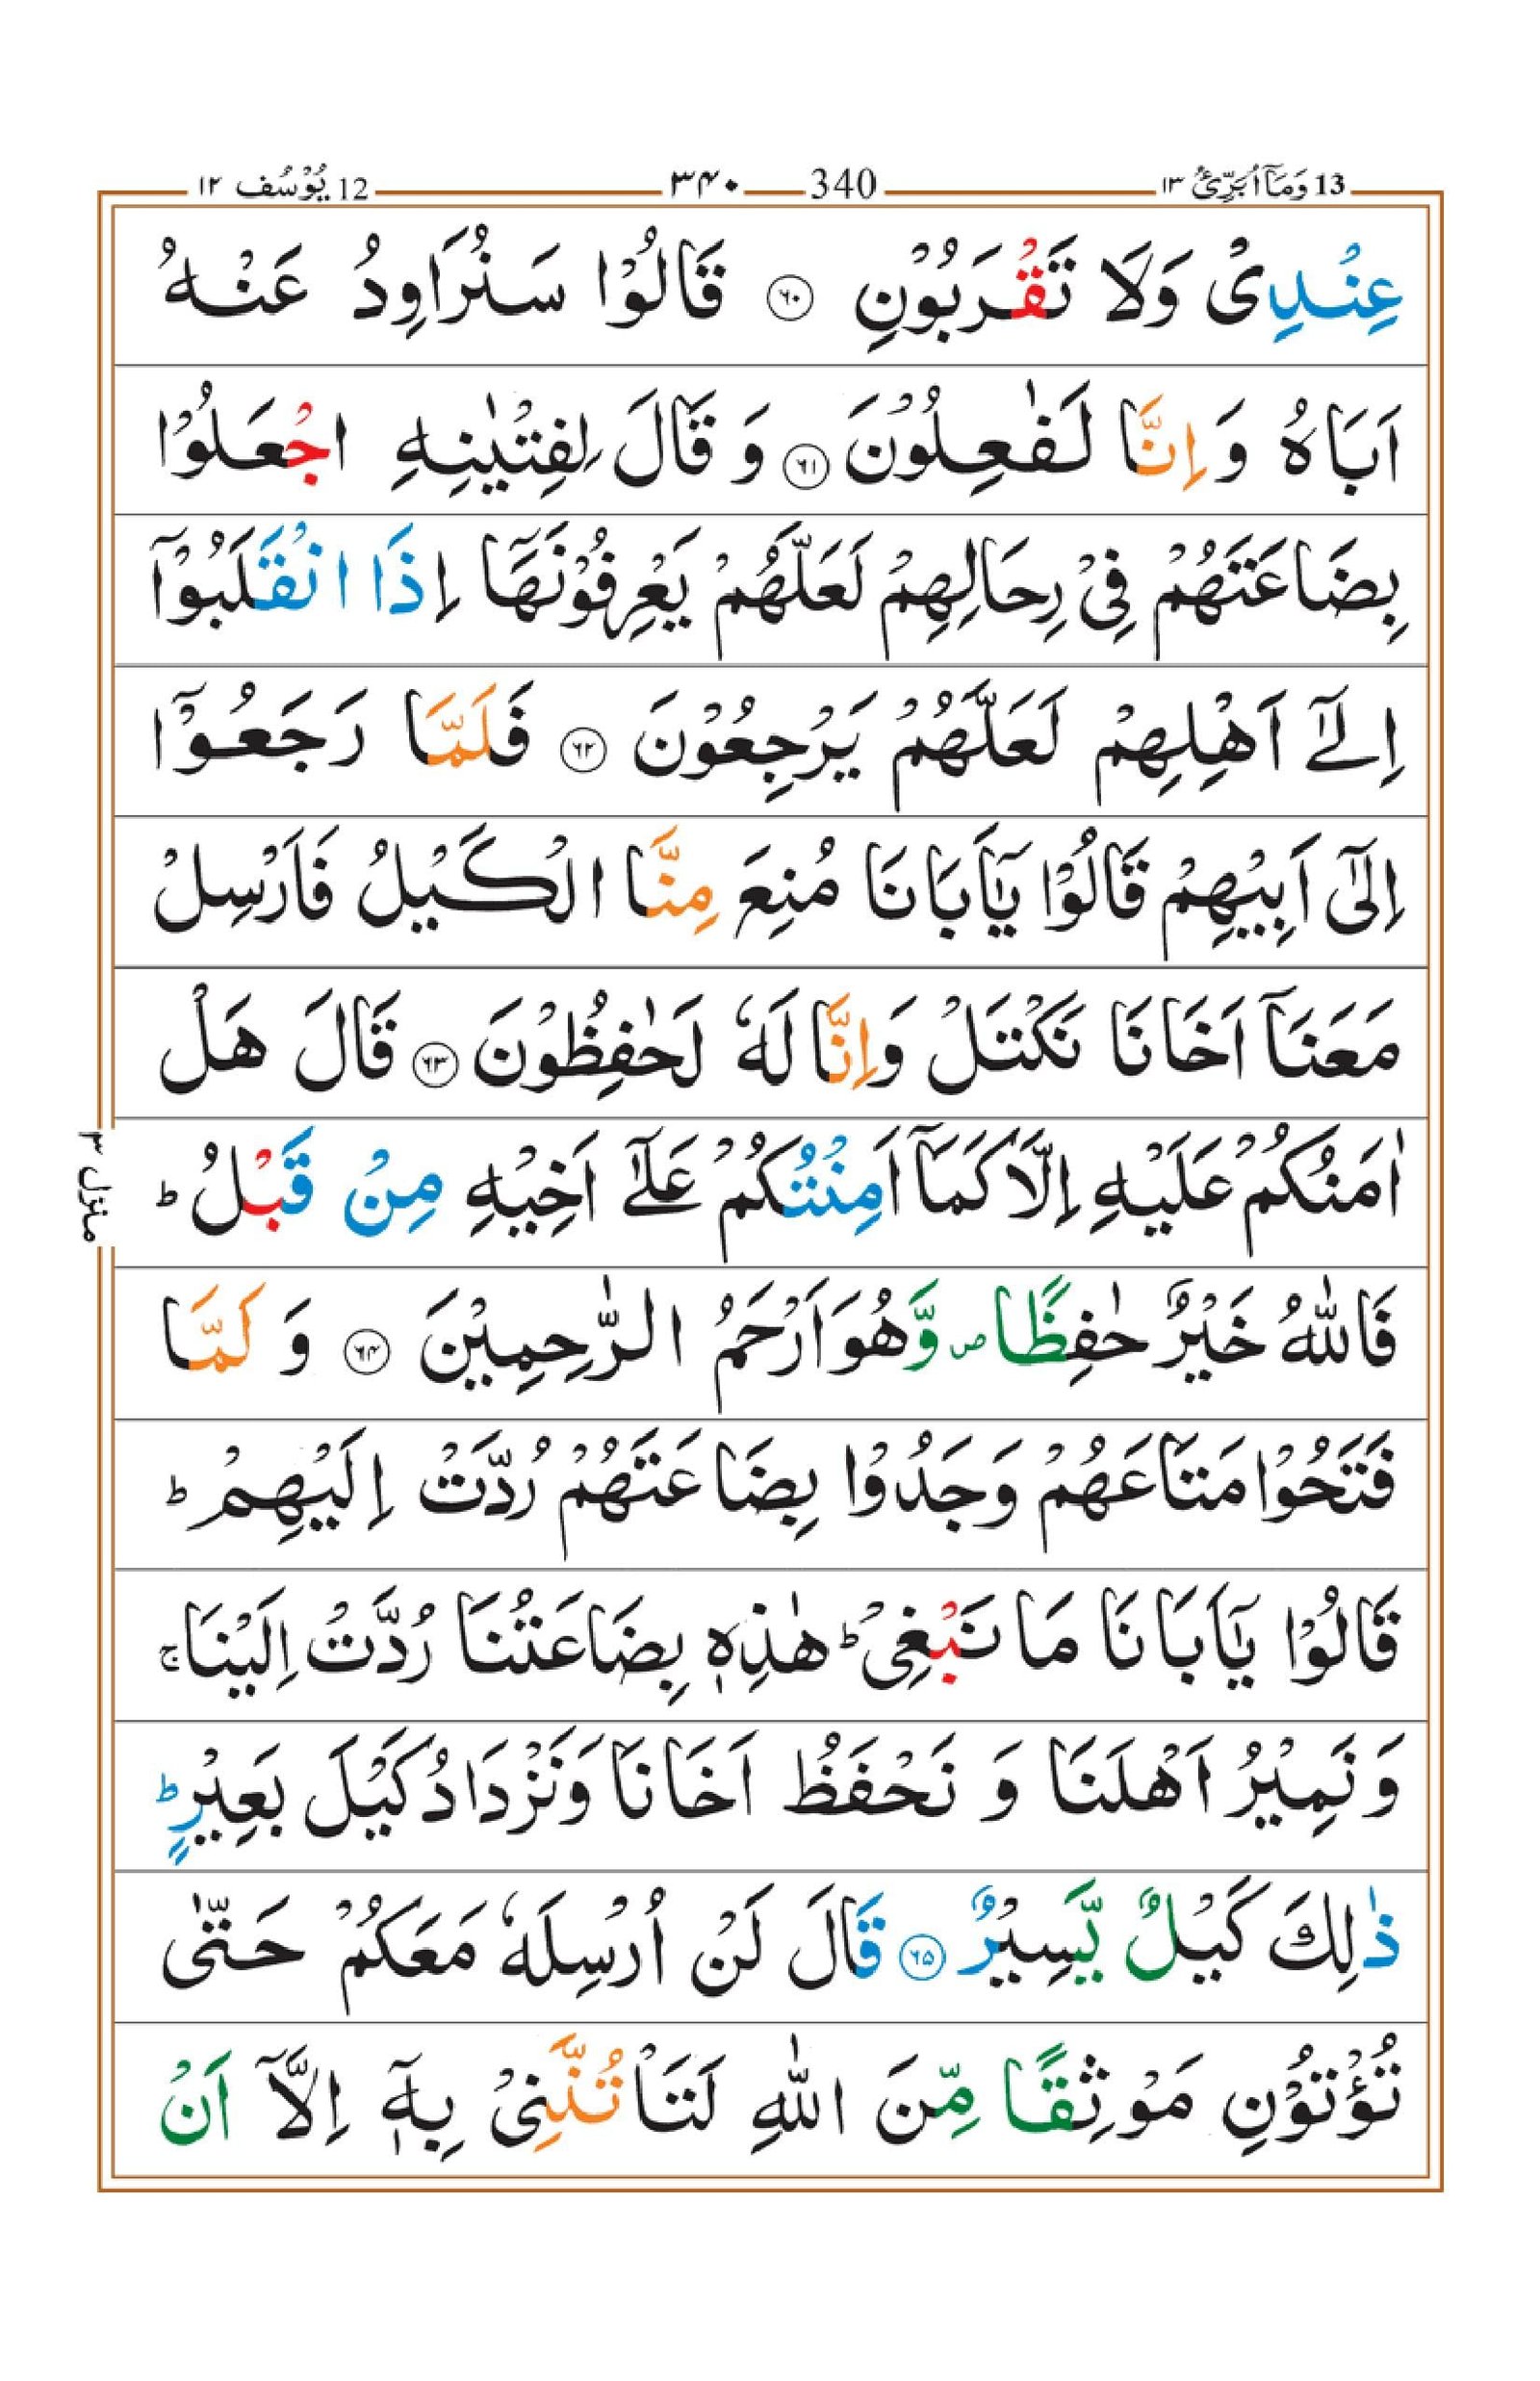 13 وَمَآ اُبَرِّئُ ۱۳ 340 ۳۴۰ 12 يُوْسُف ۱۲
عِنْدِىْ وَلَا تَقْرَبُوْنِ ۶۰ قَالُوْا سَنُرَاوِدُ عَنْهُ
اَبَاهُ وَ اِنَّا لَفٰعِلُوْنَ ۶۱ وَ قَالَ لِفِتْيٰنِهِ اجْعَلُوْا
بِضَاعَتَهُمْ فِىْ رِحَالِهِمْ لَعَلَّهُمْ يَعْرِفُوْنَهَاۤ اِذَا انْقَلَبُوْۤا
اِلٰٓى اَهْلِهِمْ لَعَلَّهُمْ يَرْجِعُوْنَ ۶۲ فَلَمَّا رَجَعُوْۤا
اِلٰٓى اَبِيْهِمْ قَالُوْا يٰۤاَبَانَا مُنِعَ مِنَّا الْكَيْلُ فَاَرْسِلْ
مَعَنَاۤ اَخَانَا نَكْتَلْ وَاِنَّا لَهٗ لَحٰفِظُوْنَ ۶۳ قَالَ هَلْ
اٰمَنُكُمْ عَلَيْهِ اِلَّا كَمَاۤ اَمِنْتُكُمْ عَلٰٓى اَخِيْهِ مِنْ قَبْلُ ؕ
فَاللّٰهُ خَيْرٌ حٰفِظًا ۖ وَّهُوَ اَرْحَمُ الرّٰحِمِيْنَ ۶۴ وَ لَمَّا
فَتَحُوْا مَتَاعَهُمْ وَجَدُوْا بِضَاعَتَهُمْ رُدَّتْ اِلَيْهِمْ ؕ
قَالُوْا يٰۤاَبَانَا مَا نَبْغِىْ ؕ هٰذِهٖ بِضَاعَتُنَا رُدَّتْ اِلَيْنَا ۚ
وَ نَمِيْرُ اَهْلَنَا وَ نَحْفَظُ اَخَانَا وَنَزْدَادُ كَيْلَ بَعِيْرٍ ؕ
ذٰلِكَ كَيْلٌ يَّسِيْرٌ ۶۵ قَالَ لَنْ اُرْسِلَهٗ مَعَكُمْ حَتّٰى
تُؤْتُوْنِ مَوْثِقًا مِّنَ اللّٰهِ لَتَاْتُنَّنِىْ بِهٖۤ اِلَّاۤ اَنْ
منزل ۳